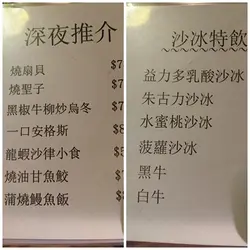 深夜推介
燒扇貝 $7
燒聖子 $
黑椒牛柳炒烏冬 $7
一口安格斯 $8
龍蝦沙律小食 $5
燒油甘魚鮫 $7
蒲燒鰻魚飯 $8
沙冰特飲
益力多乳酸沙冰
朱古力沙冰
水蜜桃沙冰
菠蘿沙冰
黑牛
白牛